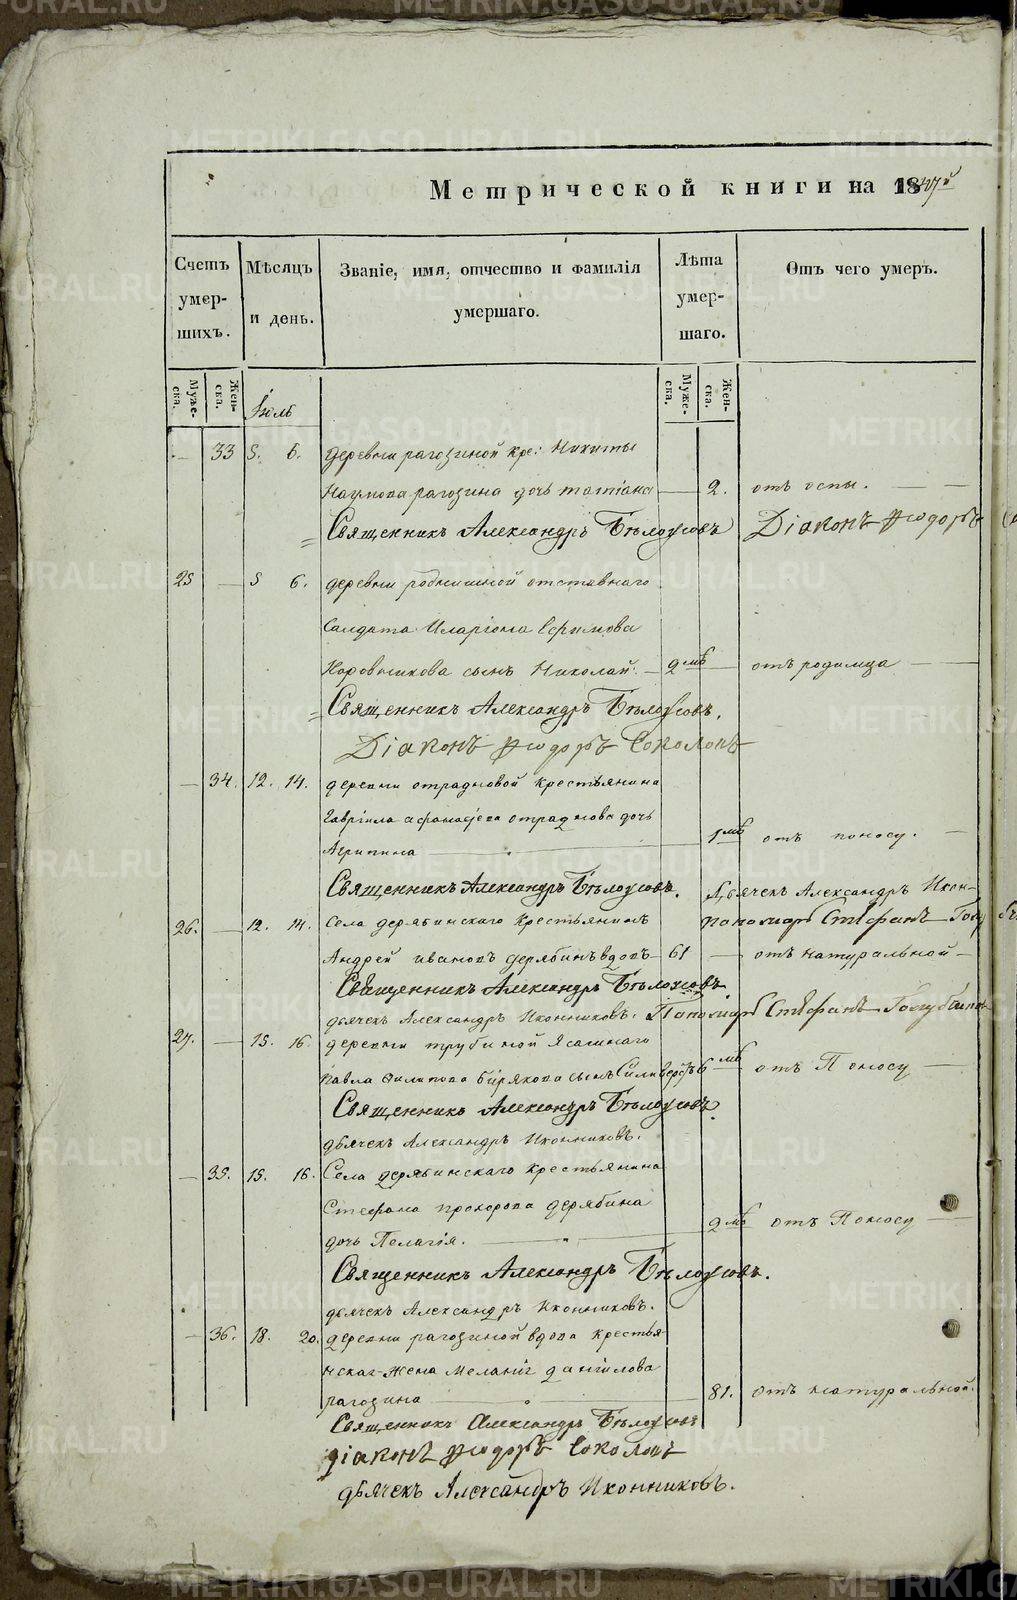 Метрической книги на 1847й
Счетъ умершихъ.
Мѣсяцъ и день.
Званіе, имя, отчество и фамилія умершаго.
Лѣта умершаго.
Отъ чего умеръ.
Мужеска.
Женска.
Іюль
Мужеска.
Женска.
— 33 5. 6. деревни рагозиной кре: Никиты
Наумова рагозина дочь татіана — 2. отъ оспы. — —
Священникъ Александръ Бѣлоусовъ Діаконъ Ѳеодоръ
25 — 5 6. деревни отставнаго
Салдата Иларіона Ефимова
Коровникова сынъ Николай. — 9 мѣ — отъ родимца —
Священникъ Александръ Бѣлоусовъ.
Діаконъ Ѳеодоръ Соколовъ
— 34. 12. 14. деревни отрадновой крестьянина
Гавріила афанасьева отраднова дочь
Агрипина — 1 мѣ отъ поносу. —
Священникъ Александръ Бѣлоусовъ. Дьячекъ Александръ Икон-
26. — 12. 14. Села дерябинскаго крестьянинъ Пономарь Стефанъ
Андрей ивановъ дерябинъ вдовъ — 61 — отъ натуральной —
Священникъ Александръ Бѣлоусовъ
дьячекъ Александръ Иконниковъ. Пономарь Стефанъ
27. — 15. 16. деревни трубиной Ясашнаго
Павла Филипова бирякова сынъ 6 мѣ — отъ Поносу —
Священникъ Александръ Бѣлоусовъ.
дьячекъ Александръ Иконниковъ.
— 35. 15. 16. Села дерябинскаго крестьянина
Стефана прохорова дерябина
дочь Пелагія. — 9 мѣ отъ Поносу —
Священникъ Александръ Бѣлоусовъ.
дьячекъ Александръ Иконниковъ.
— 36. 18. 20. деревни рагозиной вдова крестья-
нская жена Меланія данилова
рагозина — 81. отъ натуральной.
Священникъ Александръ Бѣлоусовъ
діаконъ Ѳеодоръ Соколовъ
дьячекъ Александръ Иконниковъ.
METRIKI.GASO-URAL.RU